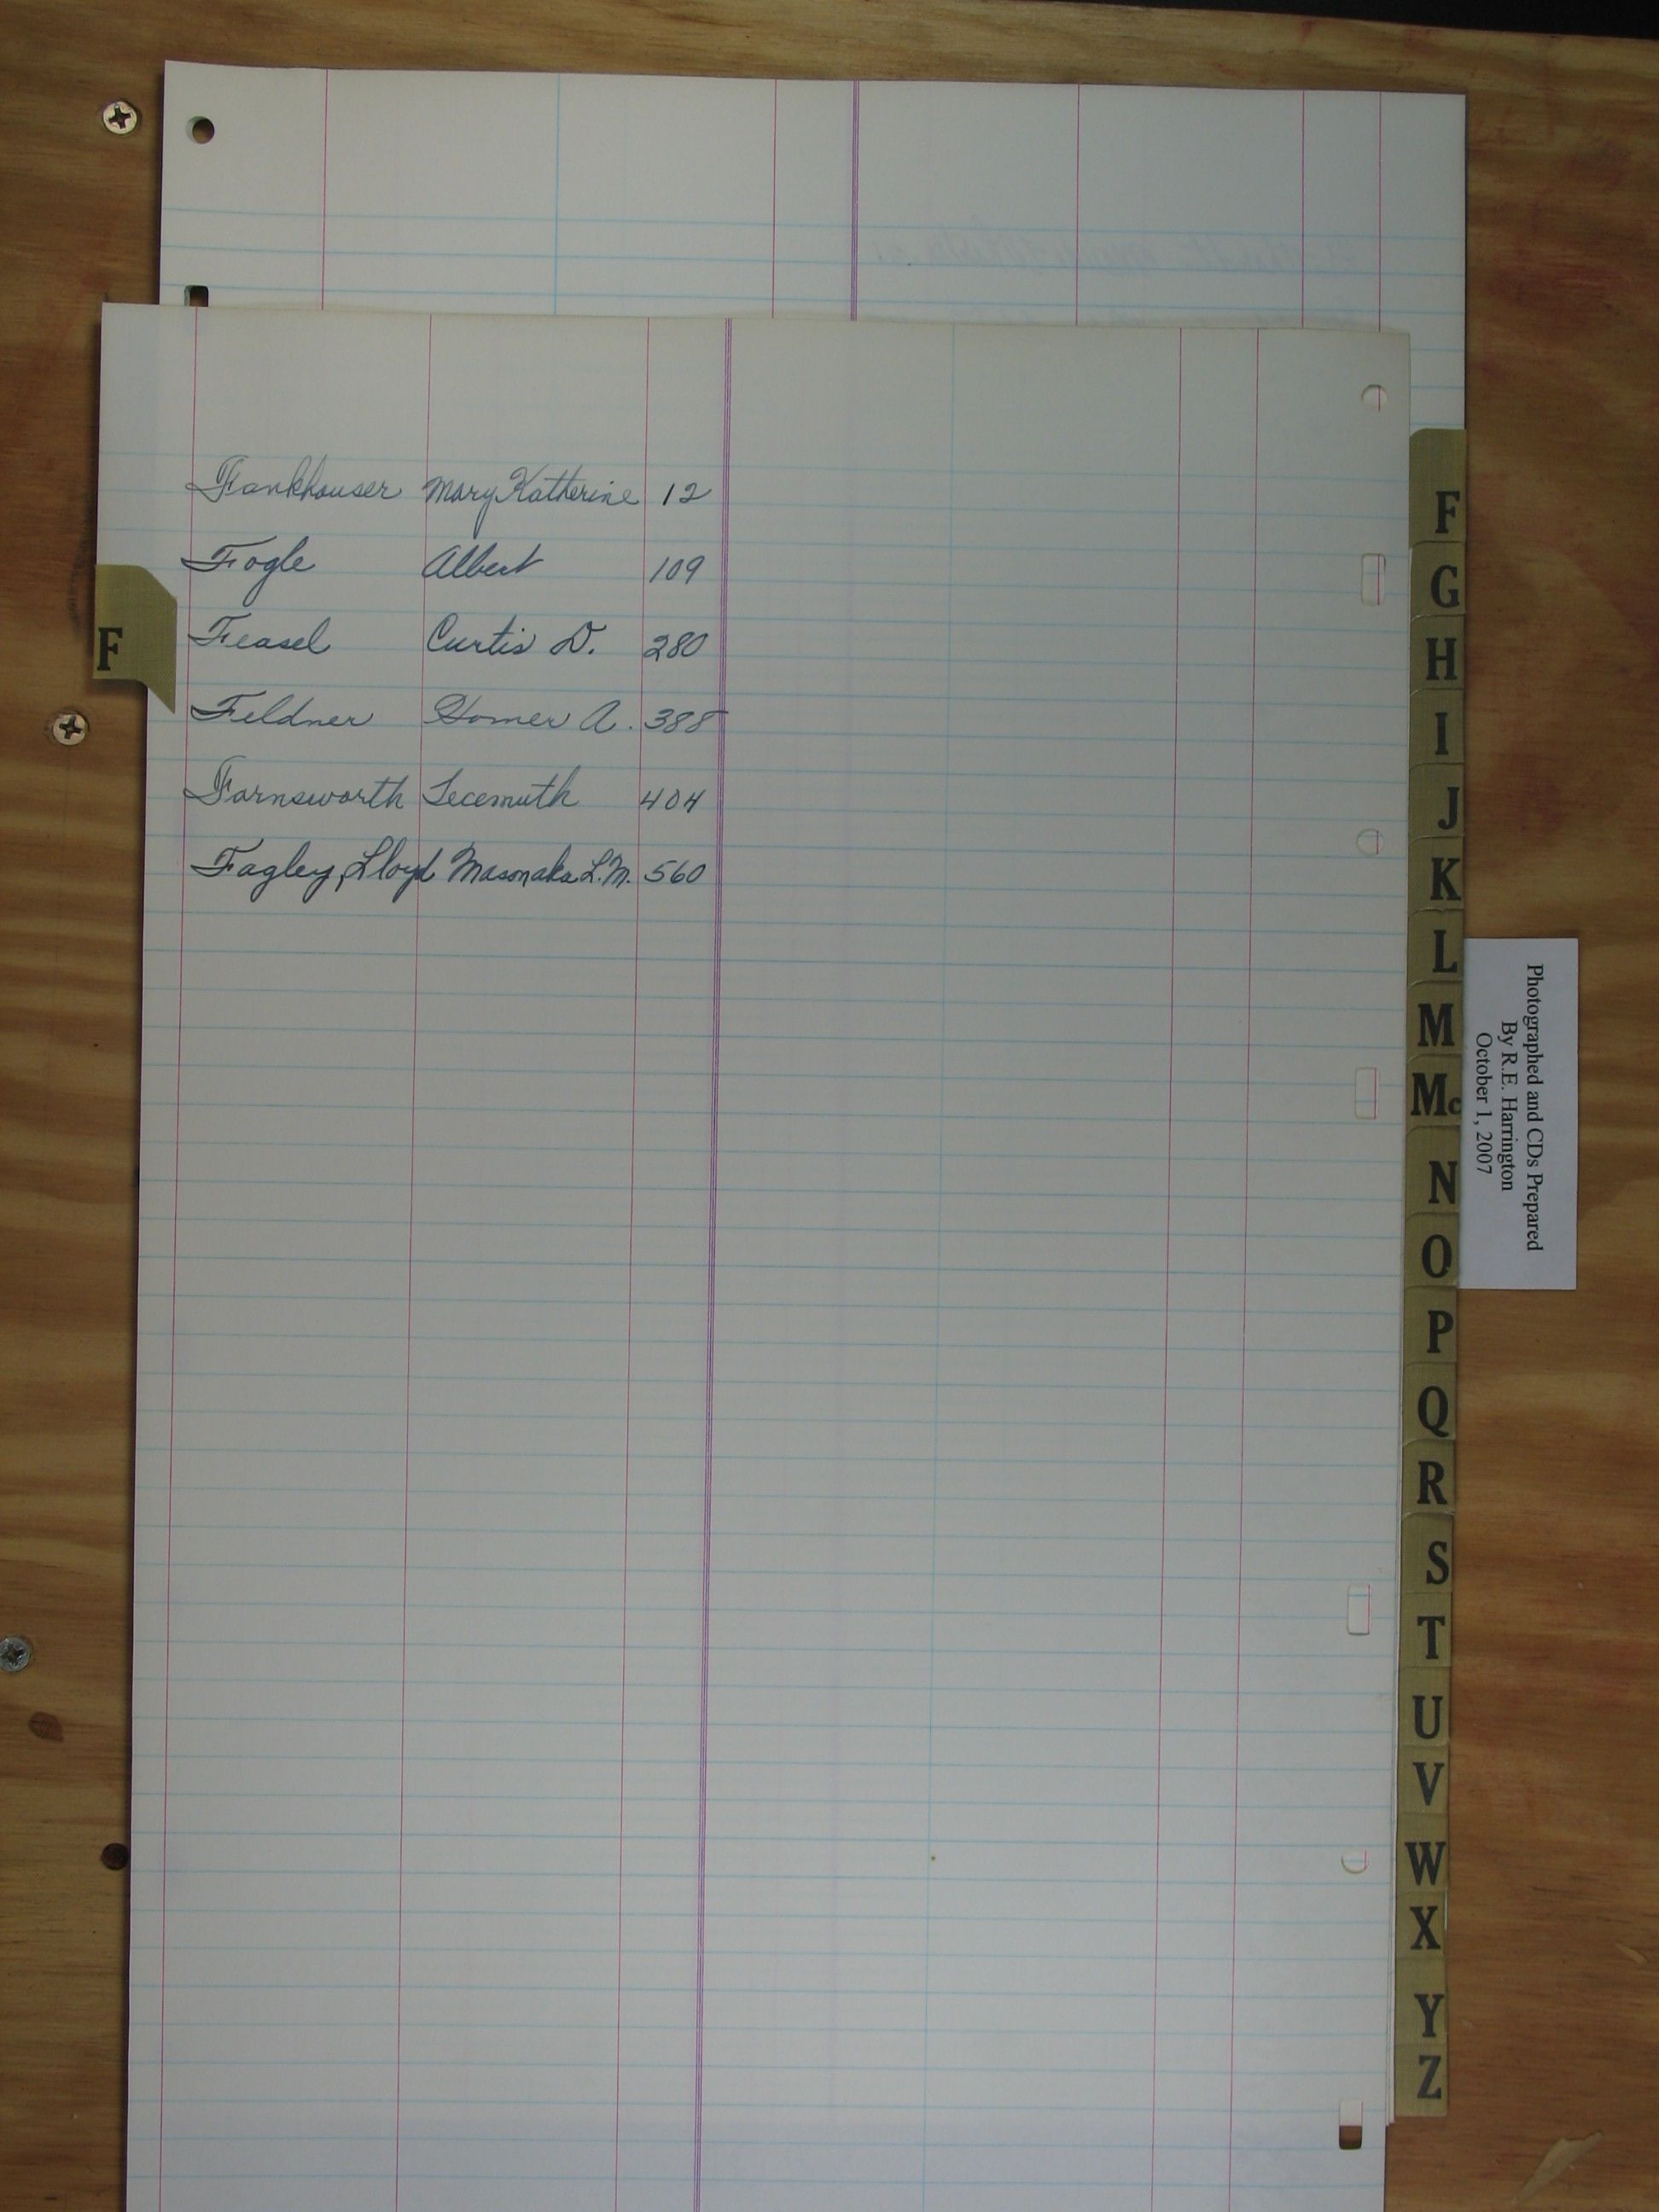 Fankhouser Mary Katherine 12
Fogle Albert 109
Feasel Curtis D. 280
Feldner Homer A. 388
Farnsworth 404
Fagley, Lloyd L.M. 560
F
F
G
H
I
J
K
L
M
Mc
N
O
P
Q
R
S
T
U
V
W
X
Y
Z
Photographed and CDs Prepared
By R.E. Harrington
October 1, 2007